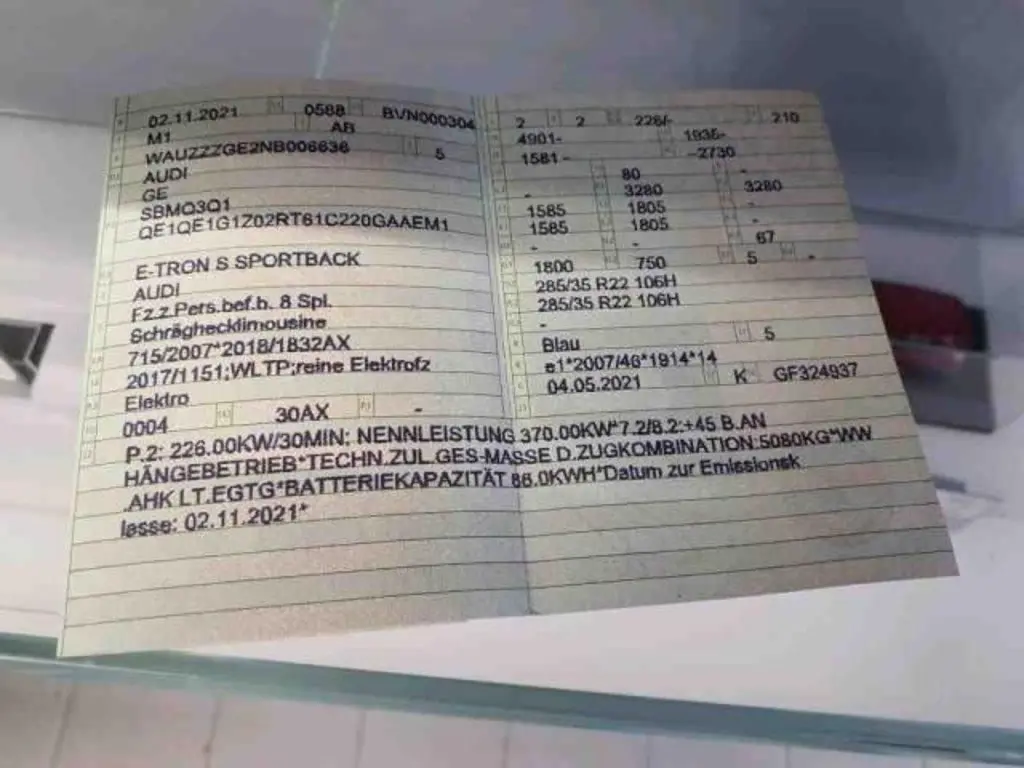 02.11.2021 0588 BVN000304
M1 AB
WAUZZZGE2NB006636 5
AUDI
GE
SBMQ3Q1
QE1QE1G1Z02RT61C220GAAEM1
E-TRON S SPORTBACK
AUDI
Fz.z.Pers.bef.b. 8 Spl.
Schräghecklimousine
715/2007*2018/1832AX
2017/1151;WLTP;reine Elektrofz
Elektro
0004 30AX -
2 2 226/- 210
4901- 1935-
1581- -2730
80 -
- 3280 3280
1585 1805 -
1585 1805 -
- - 67
1800 750 5 -
285/35 R22 106H
285/35 R22 106H
-
Blau 5
e1*2007/46*1914*14
04.05.2021 K GF324937
P.2: 226.00KW/30MIN: NENNLEISTUNG 370.00KW*7.2/8.2:+45 B.AN
HÄNGEBETRIEB*TECHN.ZUL.GES-MASSE D.ZUGKOMBINATION:5080KG*WW
.AHK LT.EGTG*BATTERIEKAPAZITÄT 86.0KWH*Datum zur Emissionsk
lasse: 02.11.2021*